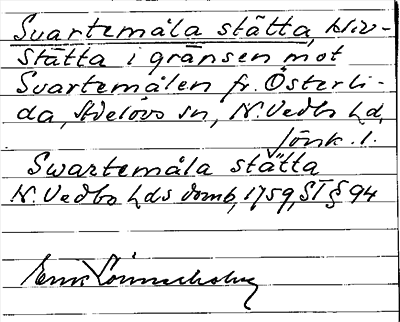 Svartemåla stätta, kliv-
stätta i gränsen mot
Svartemålen fr. Österli-
da, Adelövs sn, N. Vedbo hd,
Jönk. l.
Swartemåla stätta
N. Vedbo hds domb, 1759, ST § 94